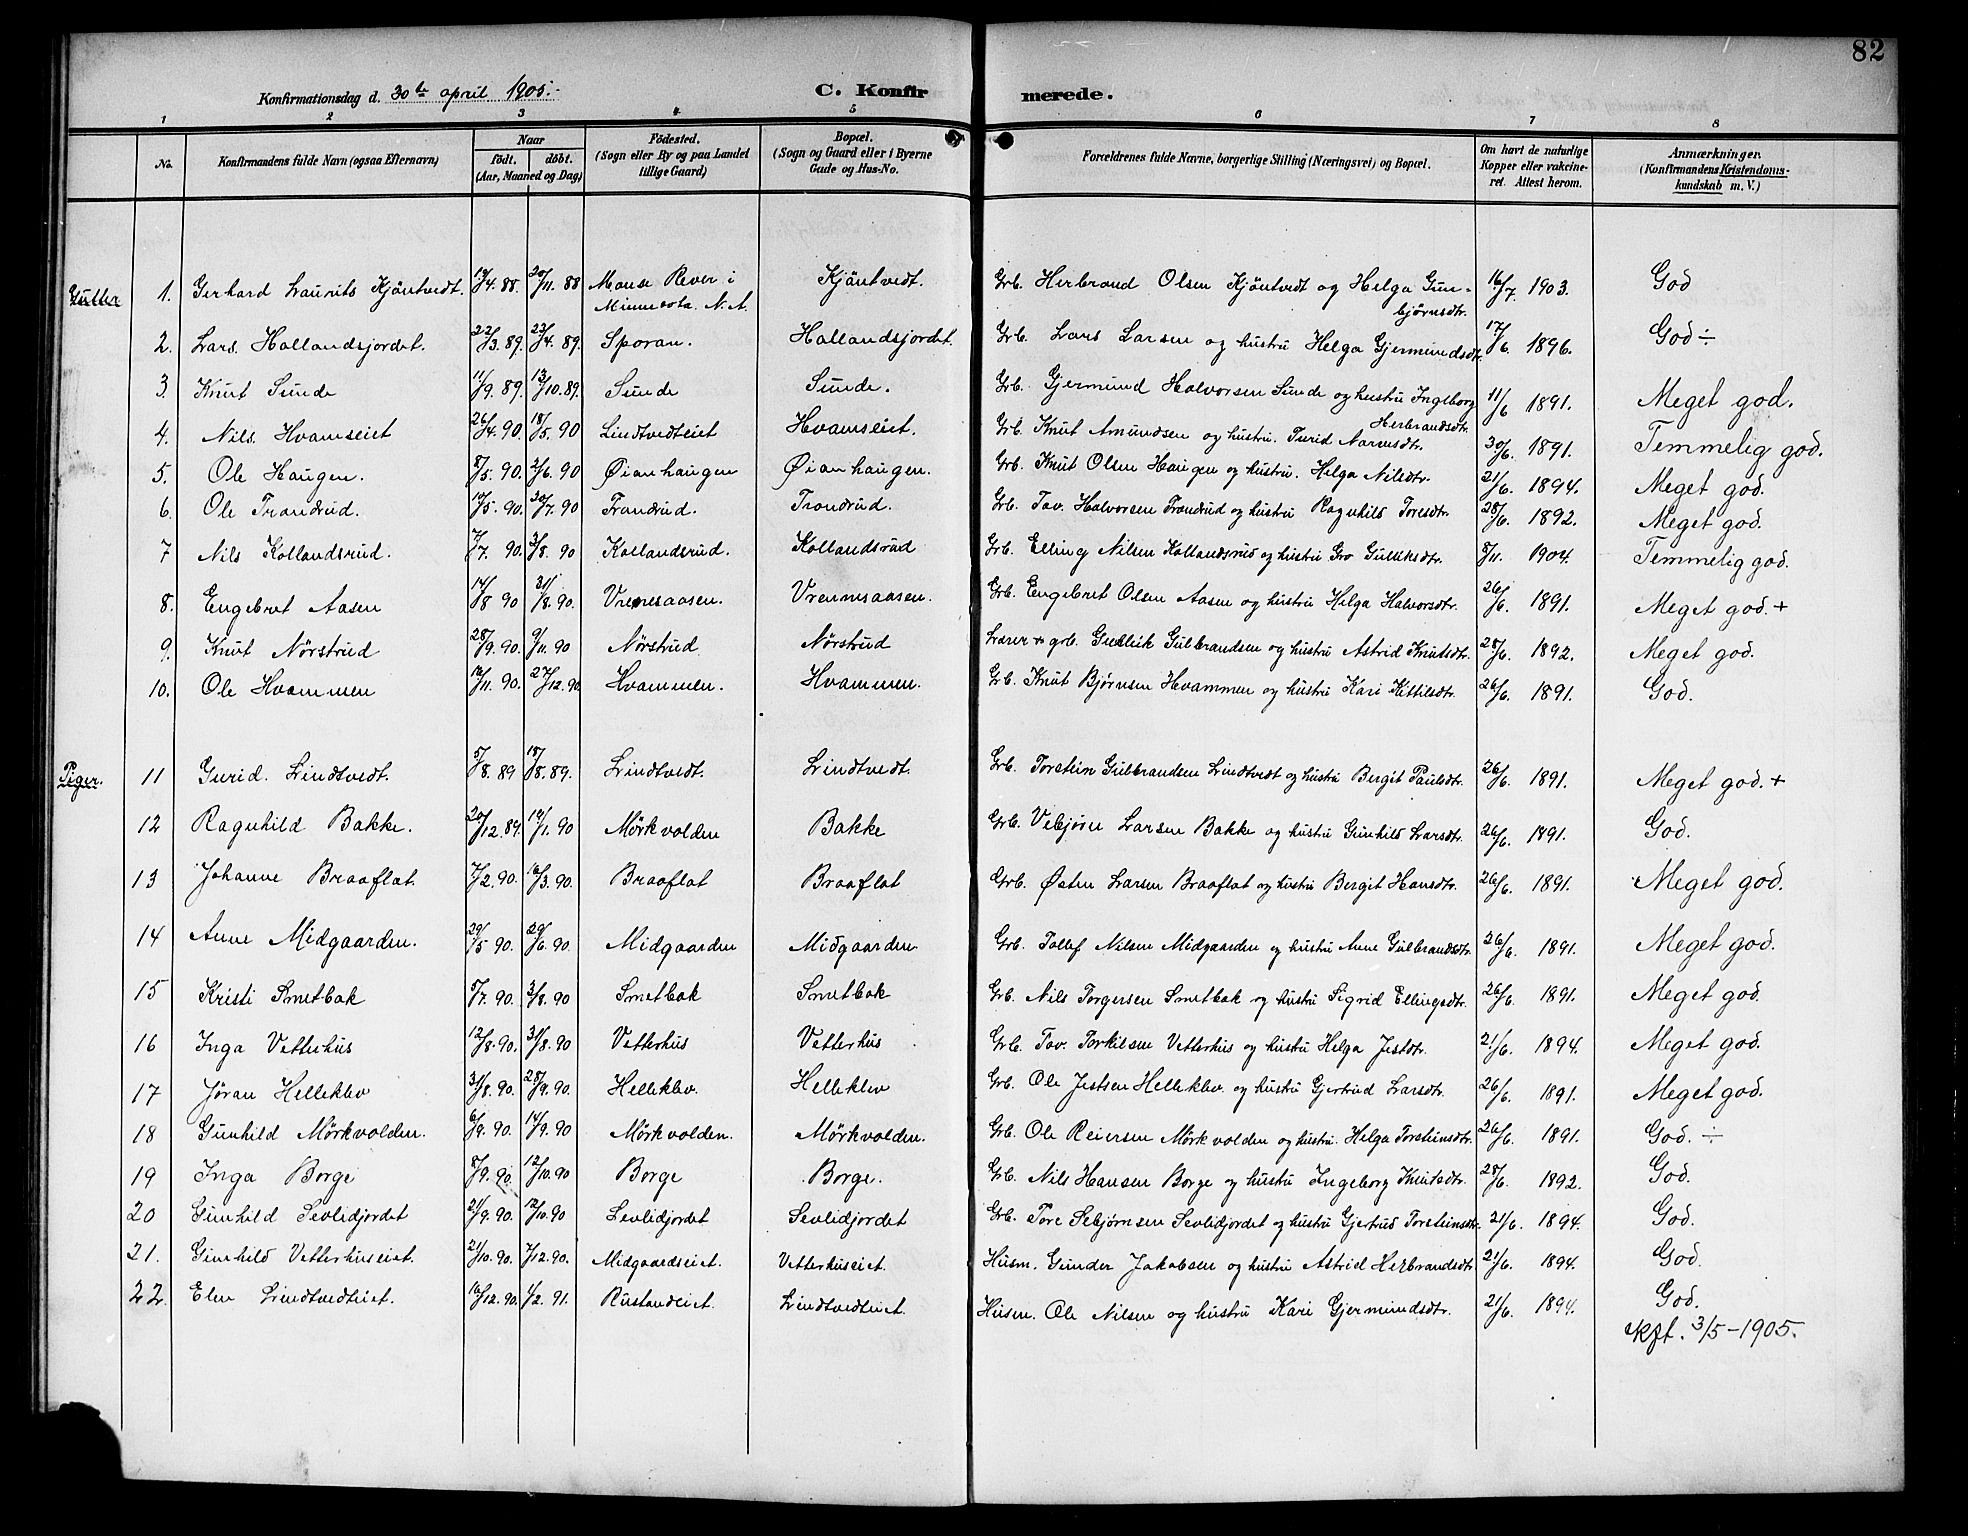 82
Konfirmationsdag d. 30te april 1905.
C. Konfirmerede.
1 2 3 4 5 6 7 8
No.
Konfirmandens fulde Navn (ogsaa Efternavn)
Naar
født. døbt.
(Aar, Maaned og Dag)
Fødested.
(Sogn eller By og paa Landet
tillige Gaard)
Bopæl.
(Sogn og Gaard eller i Byerne
Gade og Hus-No.
Forældrenes fulde Navne, borgerlige Stilling (Næringsvei) og Bopæl.
Om havt de naturlige
Kopper eller vakcine-
ret. Attest herom.
Anmærkninger.
(Konfirmandens Kristendoms-
kundskab m. V.)
Gutter 1. Gerhard Laurits Kjöntvedt. 19/4. 88. 20/11. 88 Mouse River i Minnesota. N.A. Kjöntvedt. Grb. Herbrand Olsen Kjöntvedt og Helga Gunbjørnsdtr. 16/7 1903. God
2. Lars Hallandsjordet. 22/3. 89. 23/4. 89. Sporan. Hallandsjordet. Grb. Lars Larsen og hustru Helga Gjermundsdtr. 17/6. 1896. God ÷
3. Knut Sunde 11/9. 89. 13/10. 89. Sunde Sunde. Grb. Gjermund Halvorsen Sunde og hustru Ingeborg Herbrandsdtr. 11/6 1891. Meget god.
4. Nils Hvamseiet 26/4. 90. 18/5. 90 Lindtvedteiet Hvamseiet. Grb. Knut Amundsen og hustru. Turid Narvesdtr. 30/6. 1891. Temmelig god.
5. Ole Haugen. 8/5. 90. 2/6. 90 Øianhaugen Øianhaugen. Grb. Knut Olsen Haugen og hustru. Helga Nilsdtr. 21/6. 1894. Meget god.
6. Ole Trondrud. 19/5. 90. 20/7. 90 Trondrud. Trondrud. Grb. Tov. Halvorsen Trondrud og hustru Ragnhild Toresdtr. 28/6. 1892. Meget god.
7 Nils Kollandsrud. 7/7. 90. 3/8. 90 Kollandsrud. Kollandsrud Grb. Elling Nilsen Kollandsrud og hustru Gro Gulliksdtr. 8/11. 1904. Temmelig god.
8. Engebret Aasen 14/8 90 31/8. 90. Vrenesaasen. Vrennesaasen. Grb. Engebret Olsen Aasen og hustru Helga Halvorsdtr. 26/6. 1891. Meget god. +
9. Knut Nørstrud 28/9. 90. 9/11. 90 Nørstrud Nørstrud Lærer + grb. Gullik Gulbrandsen og hustru Astrid Knutsdtr. 28/6. 1892. Meget god.
10. Ole Hvammen 16/11. 90. 27/12. 90 Hvammen. Hvammen. Grb. Knut Bjørnsen Hvammen og hustru Kari Kittilsdtr. 26/6. 1891. God.
Piger. 11 Gurid. Lindtvedt. 5/8. 89 18/8. 89. Lindtvedt. Lindtvedt. Grb. Torstein Gulbrandsen Lindtvedt og hustru Bergit Paulsdtr. 26/6. 1891. Meget god. +
12 Ragnhild Bakke. 20/12. 89. 19/1. 90 Mörkvolden Bakke Grb. Vebjørn Larsen Bakke og hustru Gunhild Larsdtr. 26/6. 1891. God.
13 Johanne Braaflat. 7/2. 90. 16/3. 90. Braaflat Braaflat Grb. Østen Larsen Braaflat og hustru Bergit Hansdtr. 26/6. 1891. Meget god.
14 Anne Midgaarden. 29/5 90. 29/6. 90. Midgaarden Midgaarden Grb. Tollef Nilsen Midgaarden og hustru Anne Gulbrandsdtr. 26/6. 1891. Meget god.
15 Kristi Smetbak 5/7. 90. 3/8. 90 Smetbak Smetbak Grb. Nils Torgersen Smetbak og hustru Sigrid Ellingsdtr. 26/6. 1891. Meget god.
16 Inga Vetterhus 12/8. 90. 31/8. 90 Vetterhus Vetterhus Grb. Tov. Torkilsen Vetterhus og hustru Helga Jestdtr. 21/6. 1894. Meget god.
17 Jöran Helleklev 31/8. 90. 28/9. 90. Helleklev. Helleklev Grb. Ole Jestsen Helleklev og hustru Gjertrud Larsdtr. 26/6. 1891. Meget god.
18 Gunhild Mörkvolden. 6/9. 90. 14/9. 90 Mörkvolden. Mörkvolden. Grb. Ole Reiersen Mörkvolden og hustru. Helga Torsteinsdtr. 26/6. 1891. God. ÷
19 Inga Borge 8/9. 90. 12/10. 90 Borge Borge. Grb. Nils Hansen Borge og hustru Ingeborg Knutsdtr. 28/6. 1892. God.
20 Gunhild Sevlidjordet 21/9. 90. 12/10. 90 Sevlidjordet Sevlidjordet Grb. Tore Sebjørnsen Sevlidjordet og hustru Gjertrud Torsteinsdtr. 21/6. 1894. God.
21. Gunhild Vetterhuseiet. 21/10. 90. 7/12. 90. Midgaardseiet. Vetterhuseiet. Husm. Gunder Jakobsen og hustru Astrid Herbrandsdtr 21/6. 1894. God.
22. Elev Lindtvedteiet. 16/12. 90. 1/2. 91. Rustandeiet. Lindtvedteiet. Husm. Ole Nilsen og hustru Kari Gjermundsdtr. 21/6. 1894. God.
kft. 3/5-1905.